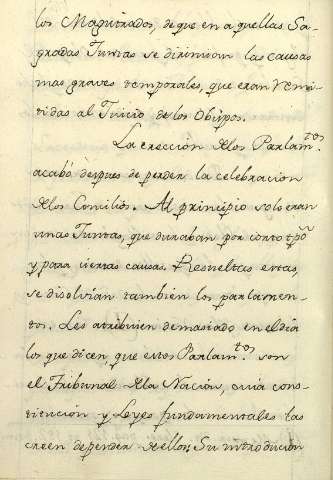 los Magistrados, de que en aquellas Sa-
gradas Juntas se dirimian las causas
mas graves temporales, que eran remi-
tidas al Juicio de los Obispos.
La ereccion de los Parlam.tos
acabó despues de perder la celebracion
de los Concilios. Al principio solo eran
unas Juntas, que duraban por corto tpõ
y para ciertas causas. Resueltas estas,
se disolvian tambien los parlamen-
tos. Les atribuien demasiado en el dia
los que dicen, que estos Parlam.tos son
el Tribunal de la Nacion, cuia cons-
titucion y Leyes fundamentales las
creen depender de ellos; Su introduccion